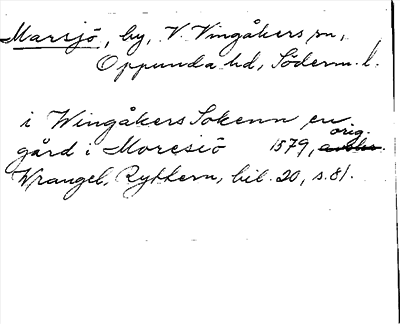 Marsjö, by, V. Vingåkers sn,
Oppunda hd, Söderm. l.
i Wingåkers Sokenn en
gård i Moresiö 1579, orig.
Wrangel, Rytkern, bil. 20, s. 81.